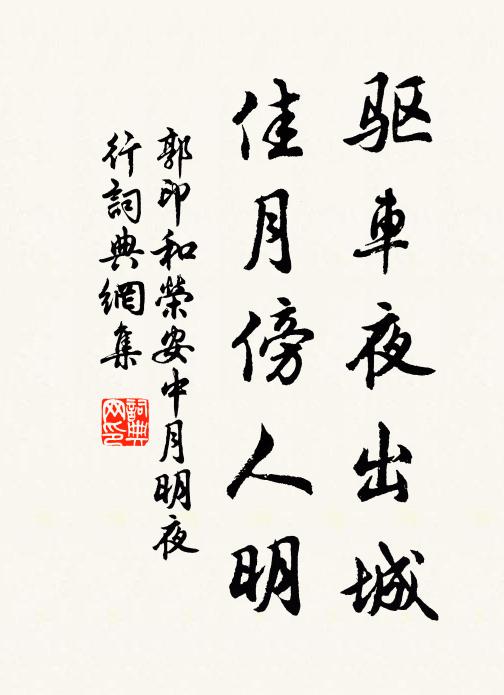 驱車夜出城
佳月傍人明
郭印和榮安中月明夜
行詞典網集
詞典
网印